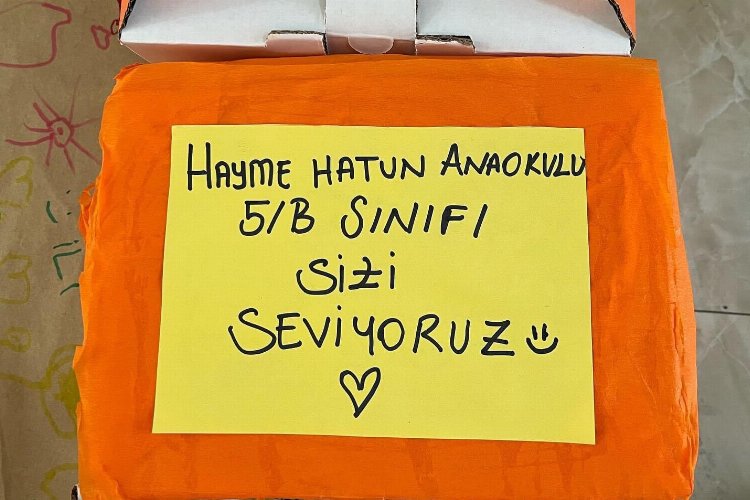 HAYME HATUN ANAOKULU
5/B SINIFI
SİZİ
SEVİYORUZ